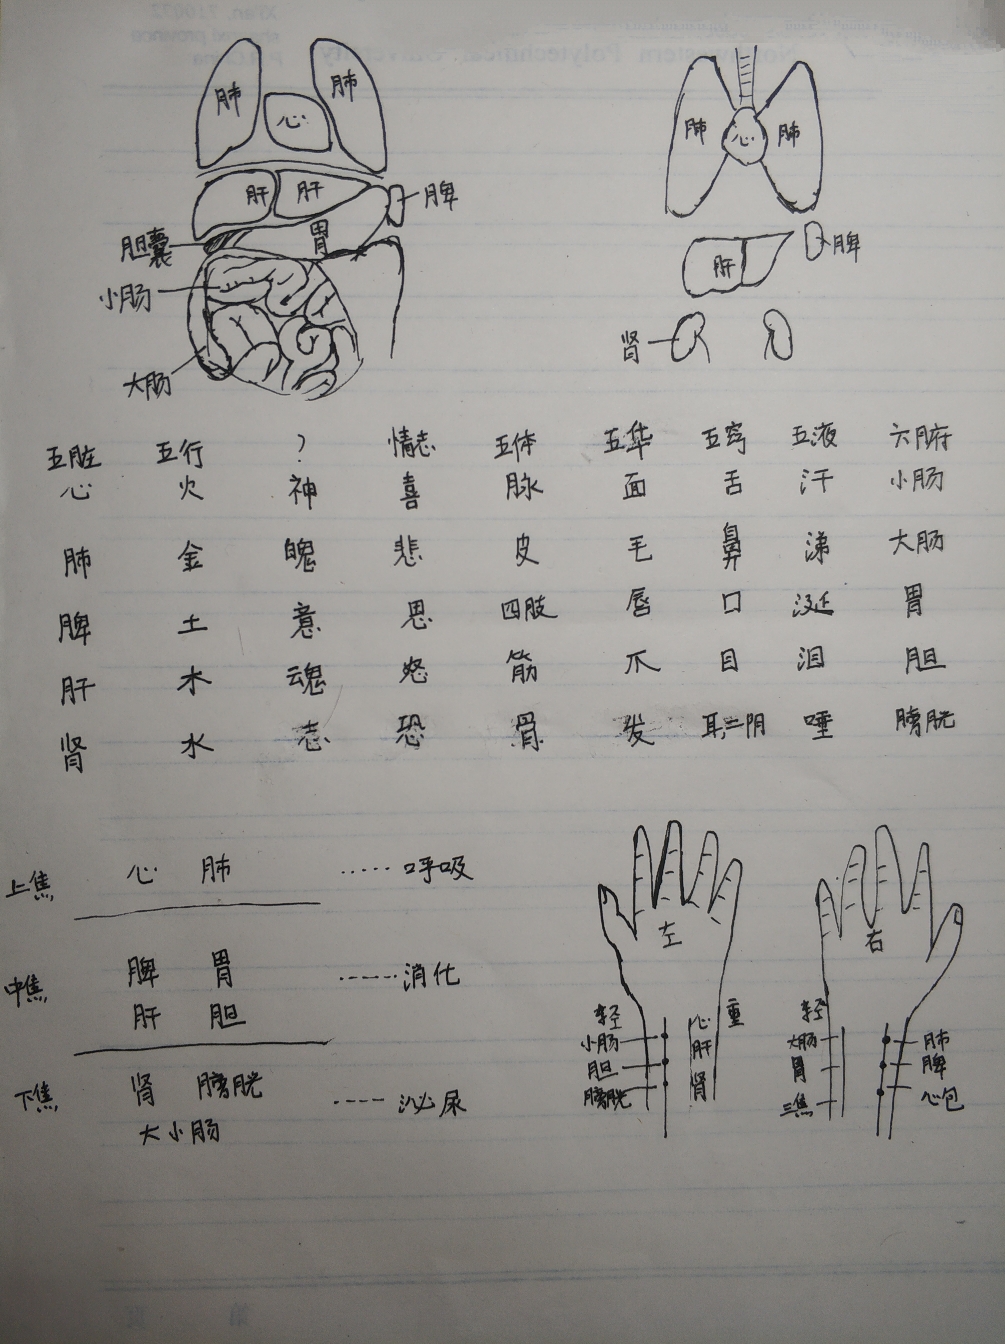 肺 肺 心
肝 肝 脾
胆囊 胃
小肠
大肠
肺 心 肺
肝 脾
肾
五脏 五行 ? 情志 五体 五华 五窍 五液 六腑
心 火 神 喜 脉 面 舌 汗 小肠
肺 金 魄 悲 皮 毛 鼻 涕 大肠
脾 土 意 思 四肢 唇 口 涎 胃
肝 木 魂 怒 筋 爪 目 泪 胆
肾 水 志 恐 骨 发 耳,二阴 唾 膀胱
上焦 心 肺 ····· 呼吸
中焦 脾 胃 ····· 消化
肝 胆
下焦 肾 膀胱 ---- 泌尿
大小肠
左
轻 心 重
小肠 肝
胆
膀胱 肾
右
轻
大肠 肺
胃 脾
三焦 心包